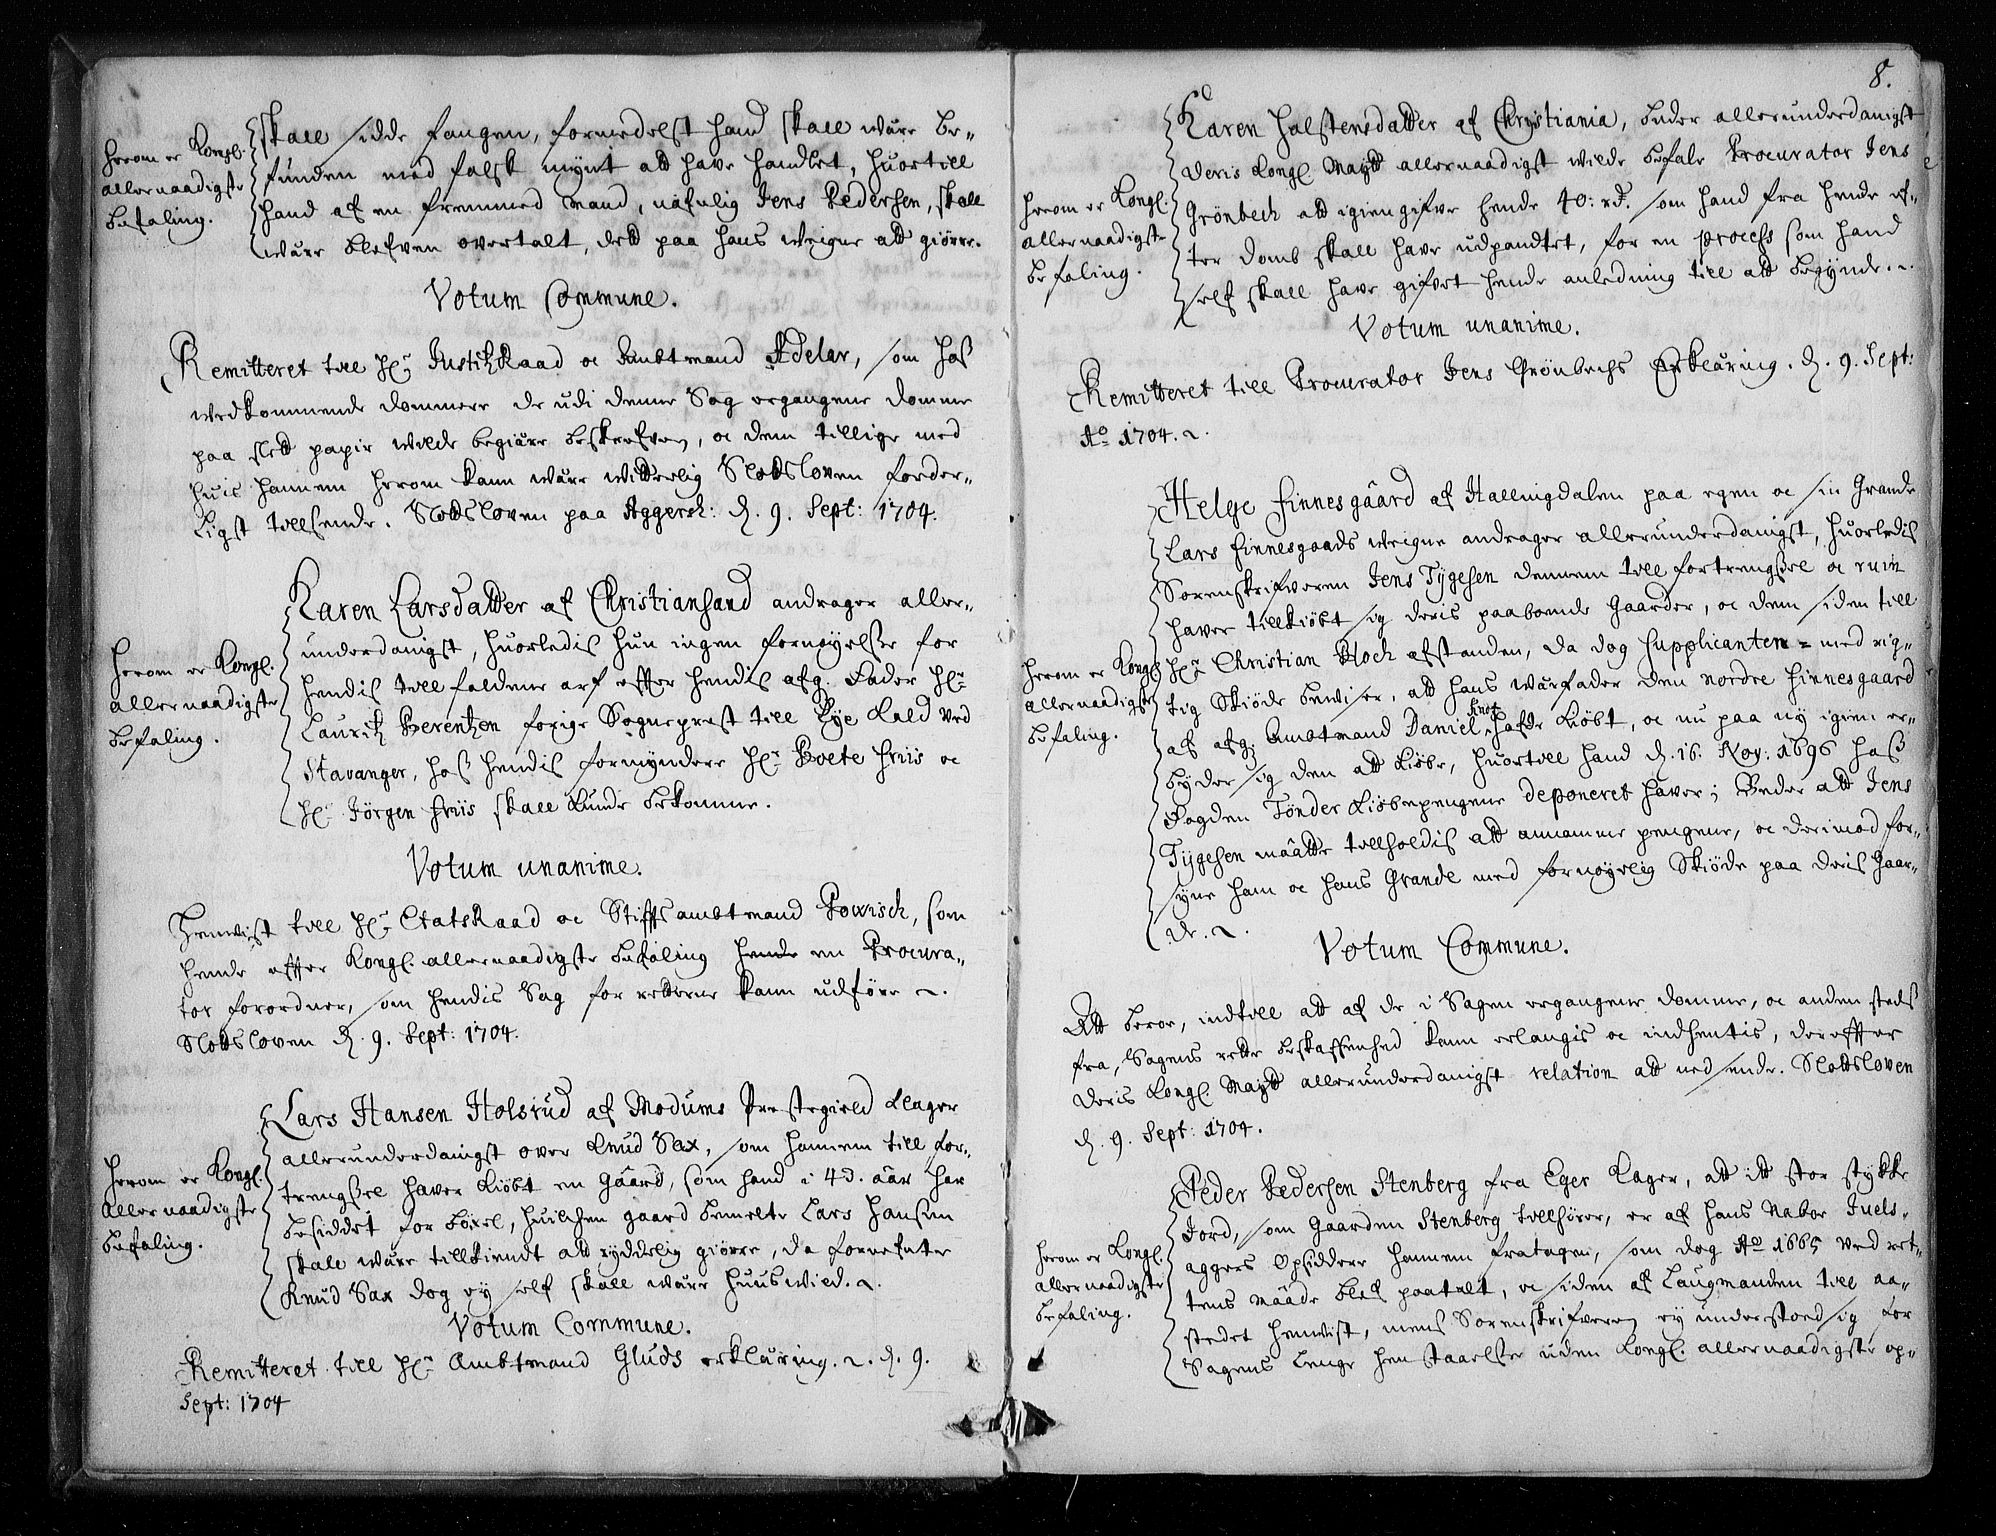 Herom er Kongl.
allernaadigste
befaling.
skall sidde fangen, formedelst hand skall være be-
funden med falsk mynt att have handlet, huortill
hand af en fremmed mand, nafnlig Jens Pedersen, skall
være blefven overtalt, dett paa hans weigne att giöre.
Votum Commune.
Remitteret till Hr. JustitzRaad oc Ambtmand Adeler, som hos
wedkommende dommere de udi denne Sag ergangene domme
paa slett papir wilde begiære beskrefven, oc dem tillige med
huis hannem herom kann være witterlig Slotsloven forder-
ligst tillsende. Slotsloven paa Aggersh: d. 9. Sept: 1704.
Herom er Kongl.
allernaadigste
befaling.
Karen Larsdatter af Christiansand andrager aller-
underdanigst, huorledis hun ingen fornøyelse for
hendis till faldene arf effter hendis afg. Fader Hr.
Lauritz Berentzen forige Sogneprest till Eye Kald ved
Stavanger, hos hendis formyndere Hr. Boete Friis oc
Hr. Jörgen Friis skall kunde bekomme.
Votum unanime.
Henwist till Hr. EtatsRaad oc Stiffsambtmand Powisch, som
hende effter Kongl. allernaadigste befaling hende en Procura-
tor forordner, som hendis Sag for retterne kann udföre.
Slotsloven d. 9. Sept: 1704.
Herom er Kongl.
allernaadigste
befaling.
Lars Hansen Holsrud af Modums Prestegield klager
allerunderdanigst over Knud Sax, som hannem till for-
trengsel haver kiöbt en gaard, som hand i 43. aar har
besiddet for böxel, huilchen gaard bemelte Lars Hansen
skall være tillkiendt att ryddelig giöre, da fornefnte
Knud Sax dog ey self skall være huuswild.
Votum Commune.
Remitteret till Hr. Ambtmand Gluds erklæring. d. 9.
Sept: 1704
8.
Herom er Kongl.
allernaadigste
befaling.
Karen Halstensdatter af Christiania, beder allerunderdanigst
Deris Kongl. Maytt allernaadigst wilde befale Procurator Jens
Grönbech att igiengifve hende 40: rd. som hand fra hende ef-
ter domb skall have udpandtet, for en process som hand
self skall have gifvet hende anledning till att begynde.
Votum unanime.
Remitteret till Procurator Jens Grönbechs Erklæring. d. 9. Sept:
Ao 1704.
Herom er Kongl.
allernaadigste
befaling.
Helge Finnesgaard af Hallingdalen paa egen oc sin Grande
Lars Finnesgaads weigne andrager allerunderdanigst, huorledis
Sorenskrifveren Jens Tygesen dennem till fortrengsel oc ruin
haver tillkiöbt sig deris paaboende Gaarder, oc dem siden till
Hr. Christian Bloch afstanden, da dog Supplicanten med rig-
tig Skiöde beviser, att hans wærfader den nordre Finnesgaard
af afg. Ambtmand Daniel Knof hafde kiöbt, oc nu paa ny igien er-
byder sig den att kiöbe, huortill hand d. 16. Nov: 1696 hos
Fogden Tönder kiöbepengene deponeret haver; Beder att Jens
Tygesen maatte tillholdis att annamme pengene, oc derimod for-
syne ham oc hans Grande med fornøyelig Skiöde paa deris Gaar-
de.
Votum Commune.
Att beroe, indtill att af de i Sagen ergangene domme, oc anden steds
fra, Sagens rette beskaffenhed kann erlangis oc indhentis, dereffter
Deris Kongl. Maytt allerunderdanigst relation att nedsende. Slotsloven
d. 9. Sept: 1704.
Herom er Kongl.
allernaadigste
befaling.
Peder Pedersen Stenberg fra Eger klager, att itt stor stykke
Jord, som gaarden Stenberg tillhörer, er af hans Nabor Juels-
aggers Opsiddere hannem fratagen, som dog Ao 1665 ved ret-
tens maade blef paatalt, oc siden af Laugmanden till aa-
stedet henwist, mens Sorenskrifveren ey understoed sig for
Sagens lenge henstaaelse uden Kongl. allernaadigste op-